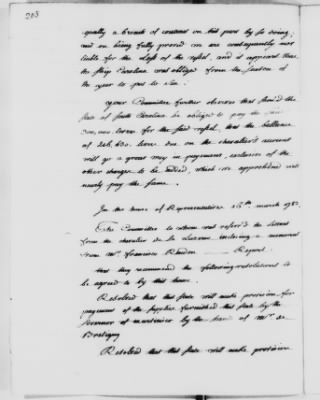 203
equally a breach of contract on his part by so doing,
and on being fully proved we are consequently not
liable for the Loss of the vessel, and it appeared that
the Ship Carolina was obliged from the Season of
the year to put to Sea.
your Committee further observe that should the
State of South Carolina be obliged to pay the
300,000 livres for the said vessel, that the ballance
of 246,430 livres due on the chevalier's account
will go a great way in payment, exclusive of the
other charges to be added, which we apprehend will
nearly pay the same.
In the house of Representatives 15th march 1783
The Committee to whom was referr'd the letters
from the chevalier de la Luzerne, inclosing a memorial
from Mr. Francisco Rendon Report
that they recommend the following resolutions to
be agreed to by this house.
Resolved that this State will make provision for
payment of the supplies furnished this State by the
Governor of martinico by the hand of Mr. de
Bretigny
Resolved that this State will make provision